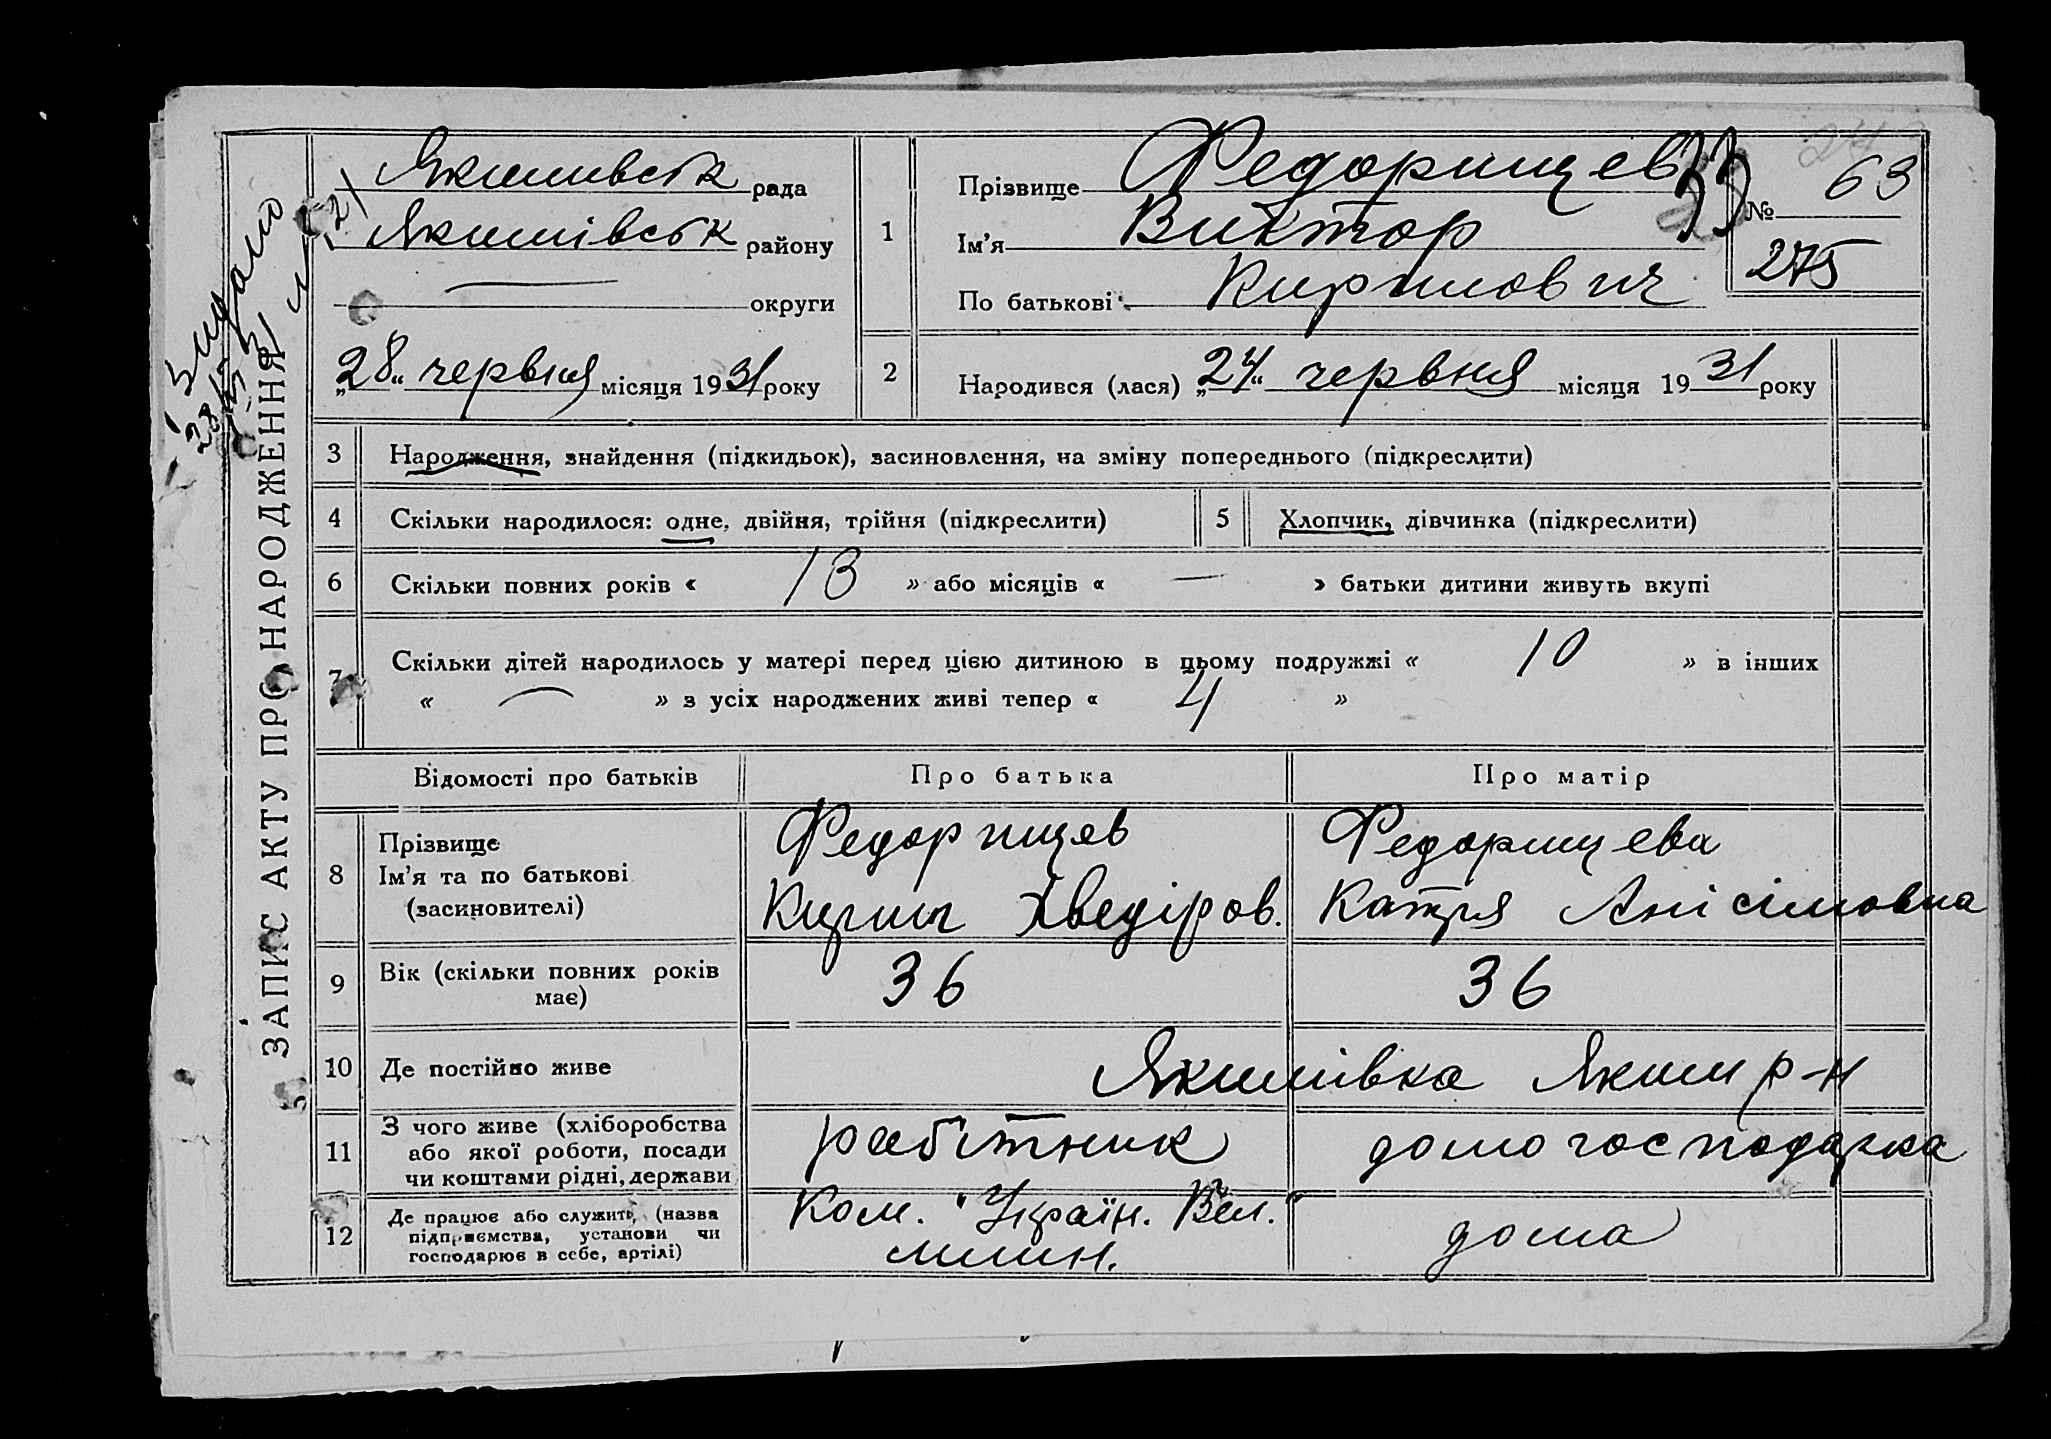 ЗАПИС АКТУ ПРО НАРОДЖЕННЯ
Видано
Якимивськ рада
Якимівськ району
— округи
„28“ червня місяця 1931 року
1
Прізвище Федорищев
Ім'я Виктор
По батькові Кирилович
№ 63
275
2
Народився (лася) „24“ червня місяця 1931 року
3 Народження, знайдення (підкидьок), засиновлення, на зміну попереднього (підкреслити)
4 Скільки народилося: одне, двійня, трійня (підкреслити)
5 Хлопчик, дівчинка (підкреслити)
6 Скільки повних років « 13 » або місяців « — » батьки дитини живуть вкупі
7 Скільки дітей народилось у матері перед цією дитиною в цьому подружжі « 10 » в інших
« — » з усіх народжених живі тепер « 4 »
Відомості про батьків Про батька Про матір
8 Прізвище
Ім'я та по батькові
(засиновителі)
Федорищев
Кирил Хведіров.
Федорищева
Катря Анісімовна
9 Вік (скільки повних років
має)
36 36
10 Де постійно живе Якимівка Яким р-н
11 З чого живе (хліборобства
або якої роботи, посади
чи коштами рідні, держави
робітник домогосподарка
12 Де працює або служить, (назва
підприємства, установи чи
господарює в себе, артілі)
Ком. "Україн. Вел."
млин.
дома